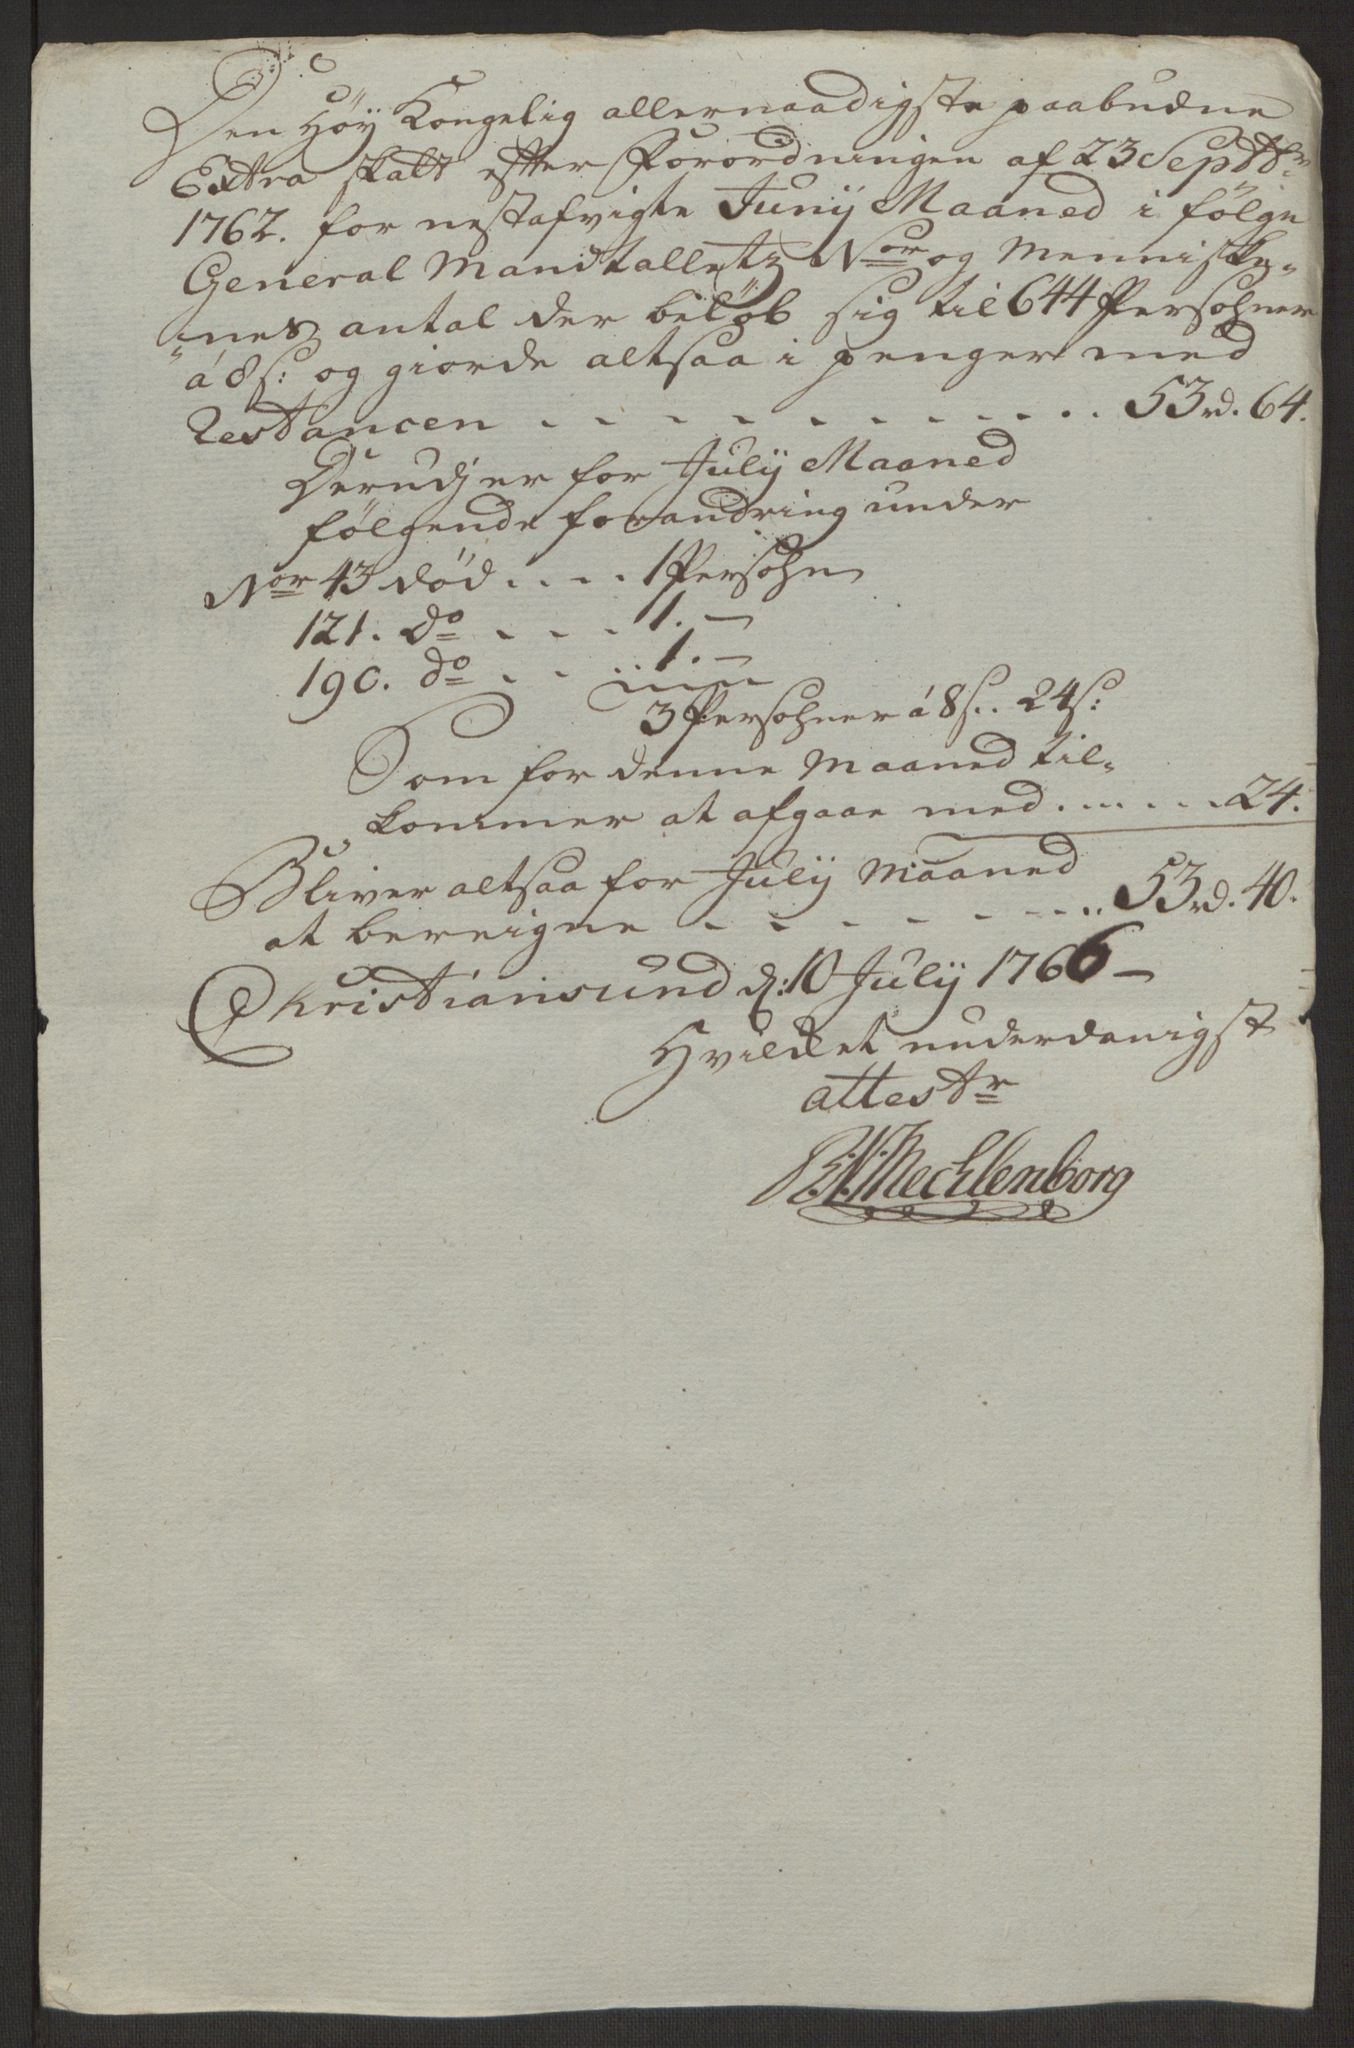 Den Höy Kongelig allernaadigste paabudne
Extra skatt efter Forordningen af 23 Septbr:
1762. for nestafvigte Junij Maaned i følge
General Mandtalletz Nor og Menniske„
„nes antal der beløb sig til 644 Persohner
á 8 s: og giorde altsaa i penger med
Restancen . . . . . . . . . . 53 rd. 64.
Derudj er for Julij Maaned
følgende forandring under
Nor 43 død . . . . 1 Persohn
121. do . . . . 1. —
190. do . . . . 1. —
3 Persohner á 8 s. . 24 s:
Som for denne Maaned til„
kommer at afgaae med . . . . . . . 24.
Bliver altsaa for Julij Maaned
at bereigne . . . . . . . . 53 rd. 40.
Christiansund d: 10 Julij 1766 —
Hvilket underdanigst
attestr
Mechlenborg